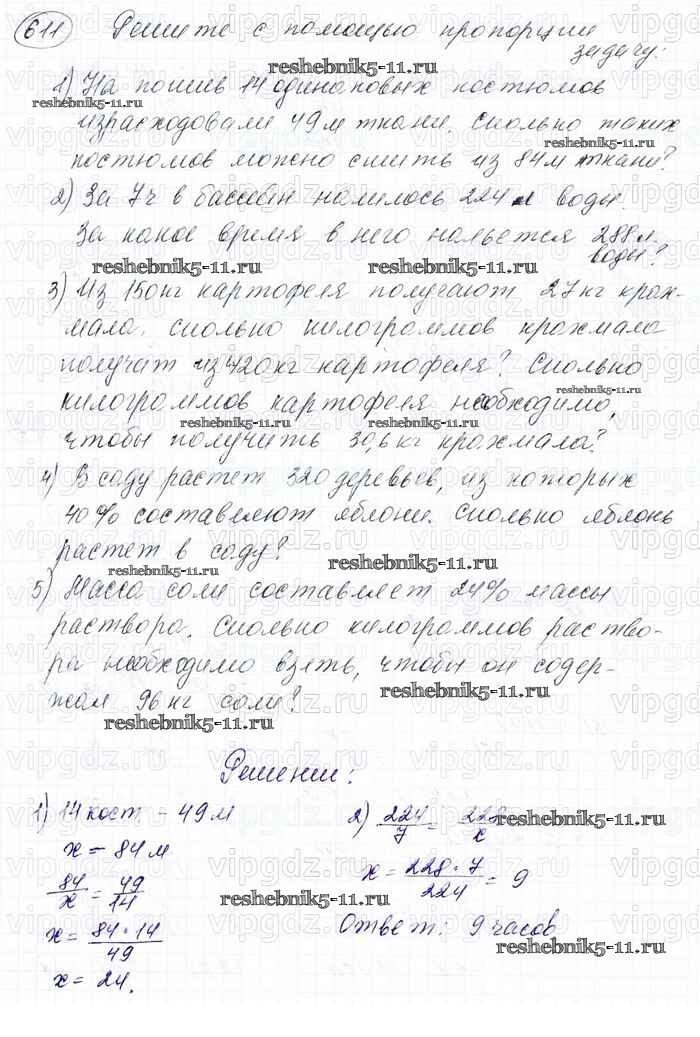 611 Решите с помощью пропорции
задачу:
1) На пошив 14 одинаковых костюмов
израсходовали 49 м ткани. Сколько таких
костюмов можно сшить из 84 м ткани?
2) За 7 ч в бассейн налилось 224 л воды.
За какое время в него нальется 288 л
воды?
3) Из 150 кг картофеля получают 27 кг крах-
мала. Сколько килограммов крахмала
получат из 420 кг картофеля? Сколько
килограммов картофеля необходимо,
чтобы получить 30,6 кг крахмала?
4) В саду растет 320 деревьев, из которых
40% составляют яблони. Сколько яблонь
растет в саду?
5) Масса соли составляет 24% массы
раствора. Сколько килограммов раство-
ра необходимо взять, чтобы он содер-
жал 96 кг соли?
Решение:
1) 14 кост – 49 м
x – 84 м
84/x = 49/14
x = 84·14/49
x = 24.
2) 224/7 = 228/x
x = 228·7/224 = 9
Ответ: 9 часов
reshebnik5-11.ru
vipgdz.ru